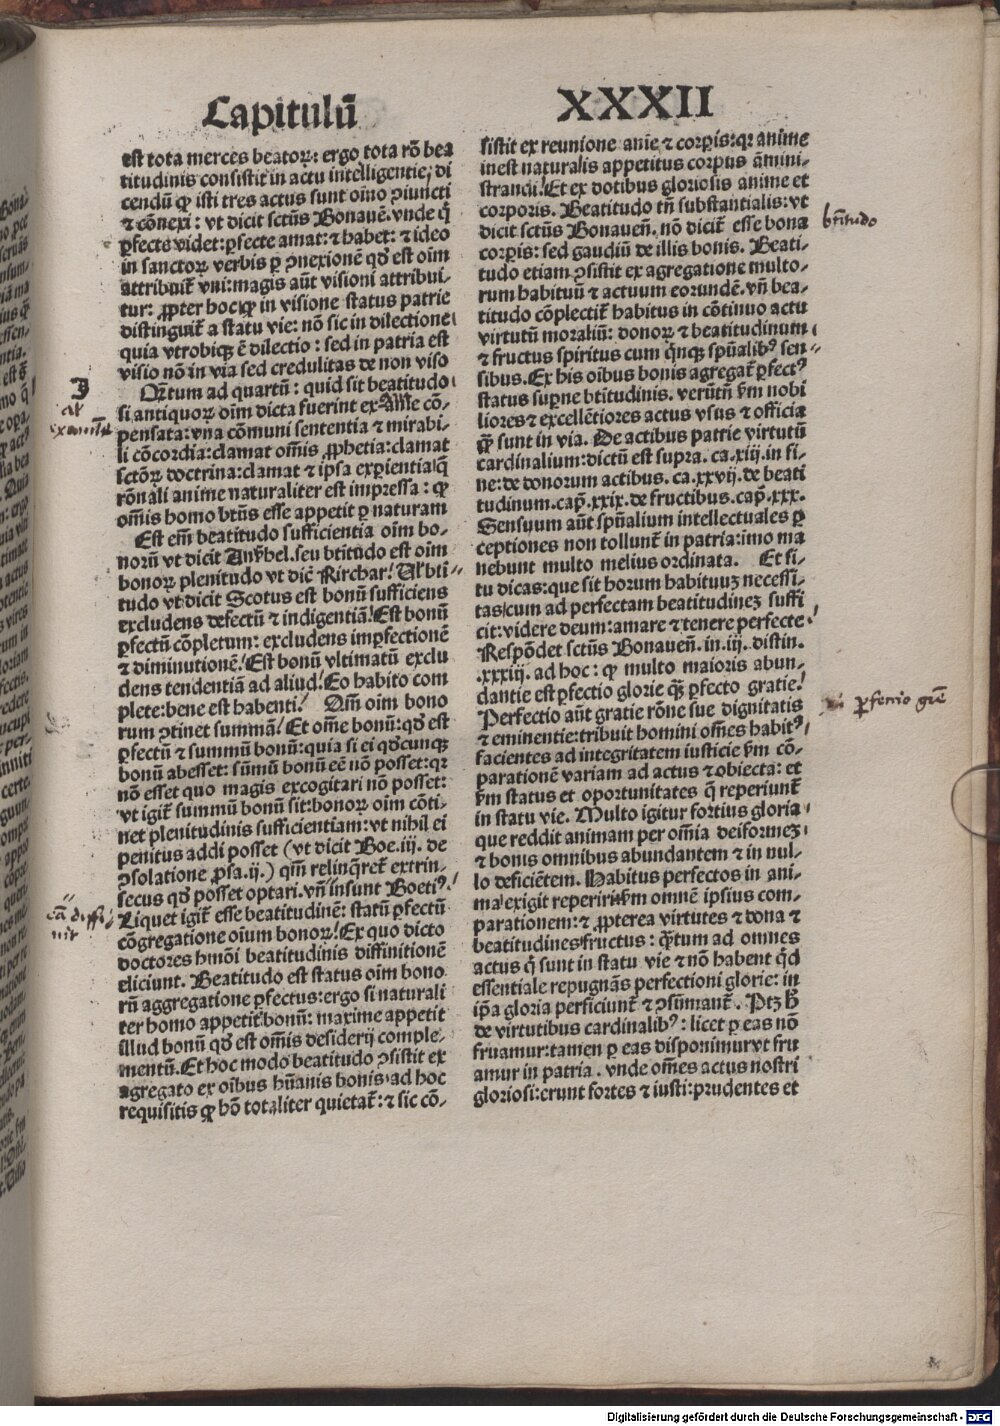 Capitulū
XXXII
est tota merces beatoꝝ: ergo tota rō bea
titudinis consistit in actu intelligentie; di
cendū ꝙ isti tres actus sunt oīno ꝯiuncti
⁊ cōnexi: vt dicit sctūs Bonauē. vnde q̇
ꝑfecte videt: ꝑfecte amat: ⁊ habet: ⁊ ideo
in sanctoꝝ verbis ꝑ ꝯnexionē qđ est oīm
attribuit̃ vni: magis aūt visioni attribui-
tur: ꝓpter hoc qꝛ in visione status patrie
distinguit̃ a statu vie: nō sic in dilectione
quia vtrobiqꝫ ē dilectio: sed in patria est
visio nō in via sed credulitas de non viso
Q̃tum ad quartū: quid sit beatitudo
si antiquoꝝ oīm dicta fuerint examīe cō-
pensata: vna cōmuni sententia ⁊ mirabi-
li cōcordia: clamat om̄is ꝓphetia: clamat
sctōꝝ doctrina: clamat ⁊ ipsa exꝑientia: q̄
rōnali anime naturaliter est impressa: ꝙ
om̄is homo btūs esse appetit ꝑ naturam
Est em̄ beatitudo sufficientia oīm bo-
norū vt dicit Anshel. seu btitudo est oīm
bonoꝝ plenitudo vt dic̄ Richar. Ul' bti-
tudo vt dicit Scotus est bonū sufficiens
excludens defectū ⁊ indigentiā. Est bonū
ꝑfectū cōpletum: excludens imꝑfectionē
⁊ diminutionē. Est bonū vltimatū exclu
dens tendentiā ad aliud. Eo habito com
plete: bene est habenti. Q̄m oīm bono
rum ꝯtinet summā. Et om̄e bonū: qđ est
ꝑfectū ⁊ summū bonū: quia si ei qđcunqꝫ
bonū abesset: sūmū bonū eē nō posset: qꝛ
nō esset quo magis excogitari nō posset:
vt igit̃ summū bonū sit: bonoꝝ oīm cōti-
net plenitudinis sufficientiam: vt nihil ei
penitus addi posset (vt dicit Boe. iij. de
ꝯsolatione ꝓsa. ij.) qm̄ relinq̄ret̃ extrin-
secus qđ posset optari. vn̄ insunt Boetiꝰ.
Liquet igit̃ esse beatitudinē: statū ꝑfectū
cōgregatione oīum bonoꝝ. Ex quo dicto
doctores hmōi beatitudinis diffinitionē
eliciunt. Beatitudo est status oīm bono
rū aggregatione ꝑfectus: ergo si naturali
ter homo appetit bonū: maxime appetit
illud bonū qđ est om̄is desiderij comple-
mentū. Et hoc modo beatitudo ꝯsistit ex
agregato ex oibus hūanis bonis ad hoc
requisitis ꝙ hō totaliter quietat̃: ⁊ sic cō-
sistit ex reunione anīe ⁊ corꝑis: qꝛ anime
inest naturalis appetitus corpus āmini-
strandi. Et ex dotibus gloriosis anime et
corporis. Beatitudo tn̄ substantialis: vt
dicit sctūs Bonauen̄. nō dicit̃ esse bona
corꝑis: sed gaudiū de illis bonis. Beati-
tudo etiam ꝯsistit ex agregatione multo-
rum habituū ⁊ actuum eorundē. vn̄ bea-
titudo cōplectit̃ habitus in cōtinuo actu
virtutū moraliū: donoꝝ ⁊ beatitudinum
⁊ fructus spiritus cum q̄nqꝫ spūalibꝰ sen-
sibus. Ex his oībus bonis agregat̃ ꝑfectꝰ
status suꝑne btitudinis. verūtn̄ ẜm nobi
liores ⁊ excellētiores actus vsus ⁊ officia
q̄ꝫ sunt in via. De actibus patrie virtutū
cardinalium: dictū est supra. ca. xiij. in fi-
ne: de donorum actibus. ca. xxvij. de beati
tudinum. cap̄. xxix. de fructibus. cap̄. xxx.
Sensuum aūt spūalium intellectuales ꝑ
ceptiones non tollunt̃ in patria: imo ma
nebunt multo melius ordinata. Et si-
tu dicas: que sit horum habituuꝫ necessi-
tas: cum ad perfectam beatitudineꝫ suffi
cit: videre deum: amare ⁊ tenere perfecte
Respōdet sctūs Bonauen̄. in. iij. distin.
.xxxiij. ad hoc: ꝙ multo maioris abun-
dantie est ꝑfectio glorie q̄ꝫ ꝑfecto gratie.
Perfectio aūt gratie rōne sue dignitatis
⁊ eminentie: tribuit homini om̄es habitꝰ
facientes ad integritatem iusticie ẜm cō-
parationē variam ad actus ⁊ obiecta: et
ẜm status et oportunitates q̄ reperiunt̃
in statu vie. Multo igitur fortius gloria
que reddit animam per om̄ia deiformeꝫ
⁊ bonis omnibus abundantem ⁊ in nul-
lo deficiētem. Habitus perfectos in ani-
ma exigit reperiri ẜm omnē ipsius com-
parationem: ⁊ ꝓpterea virtutes ⁊ dona ⁊
beatitudines ⁊ fructus: q̄tum ad omnes
actus q̄ sunt in statu vie ⁊ nō habent q̄d
essentiale repugnās perfectioni glorie: in
ip̄a gloria perficiunt̃ ⁊ ꝯsūmant̃. Ptꝫ ħ
de virtutibus cardinalibꝰ: licet ꝑ eas nō
fruamur: tamen ꝑ eas disponimur vt fru
amur in patria. vnde om̄es actus nostri
gloriosi: erunt fortes ⁊ iusti: prudentes et
btītudo
ꝑfectio grē
Digitalisierung gefördert durch die Deutsche Forschungsgemeinschaft - DFG